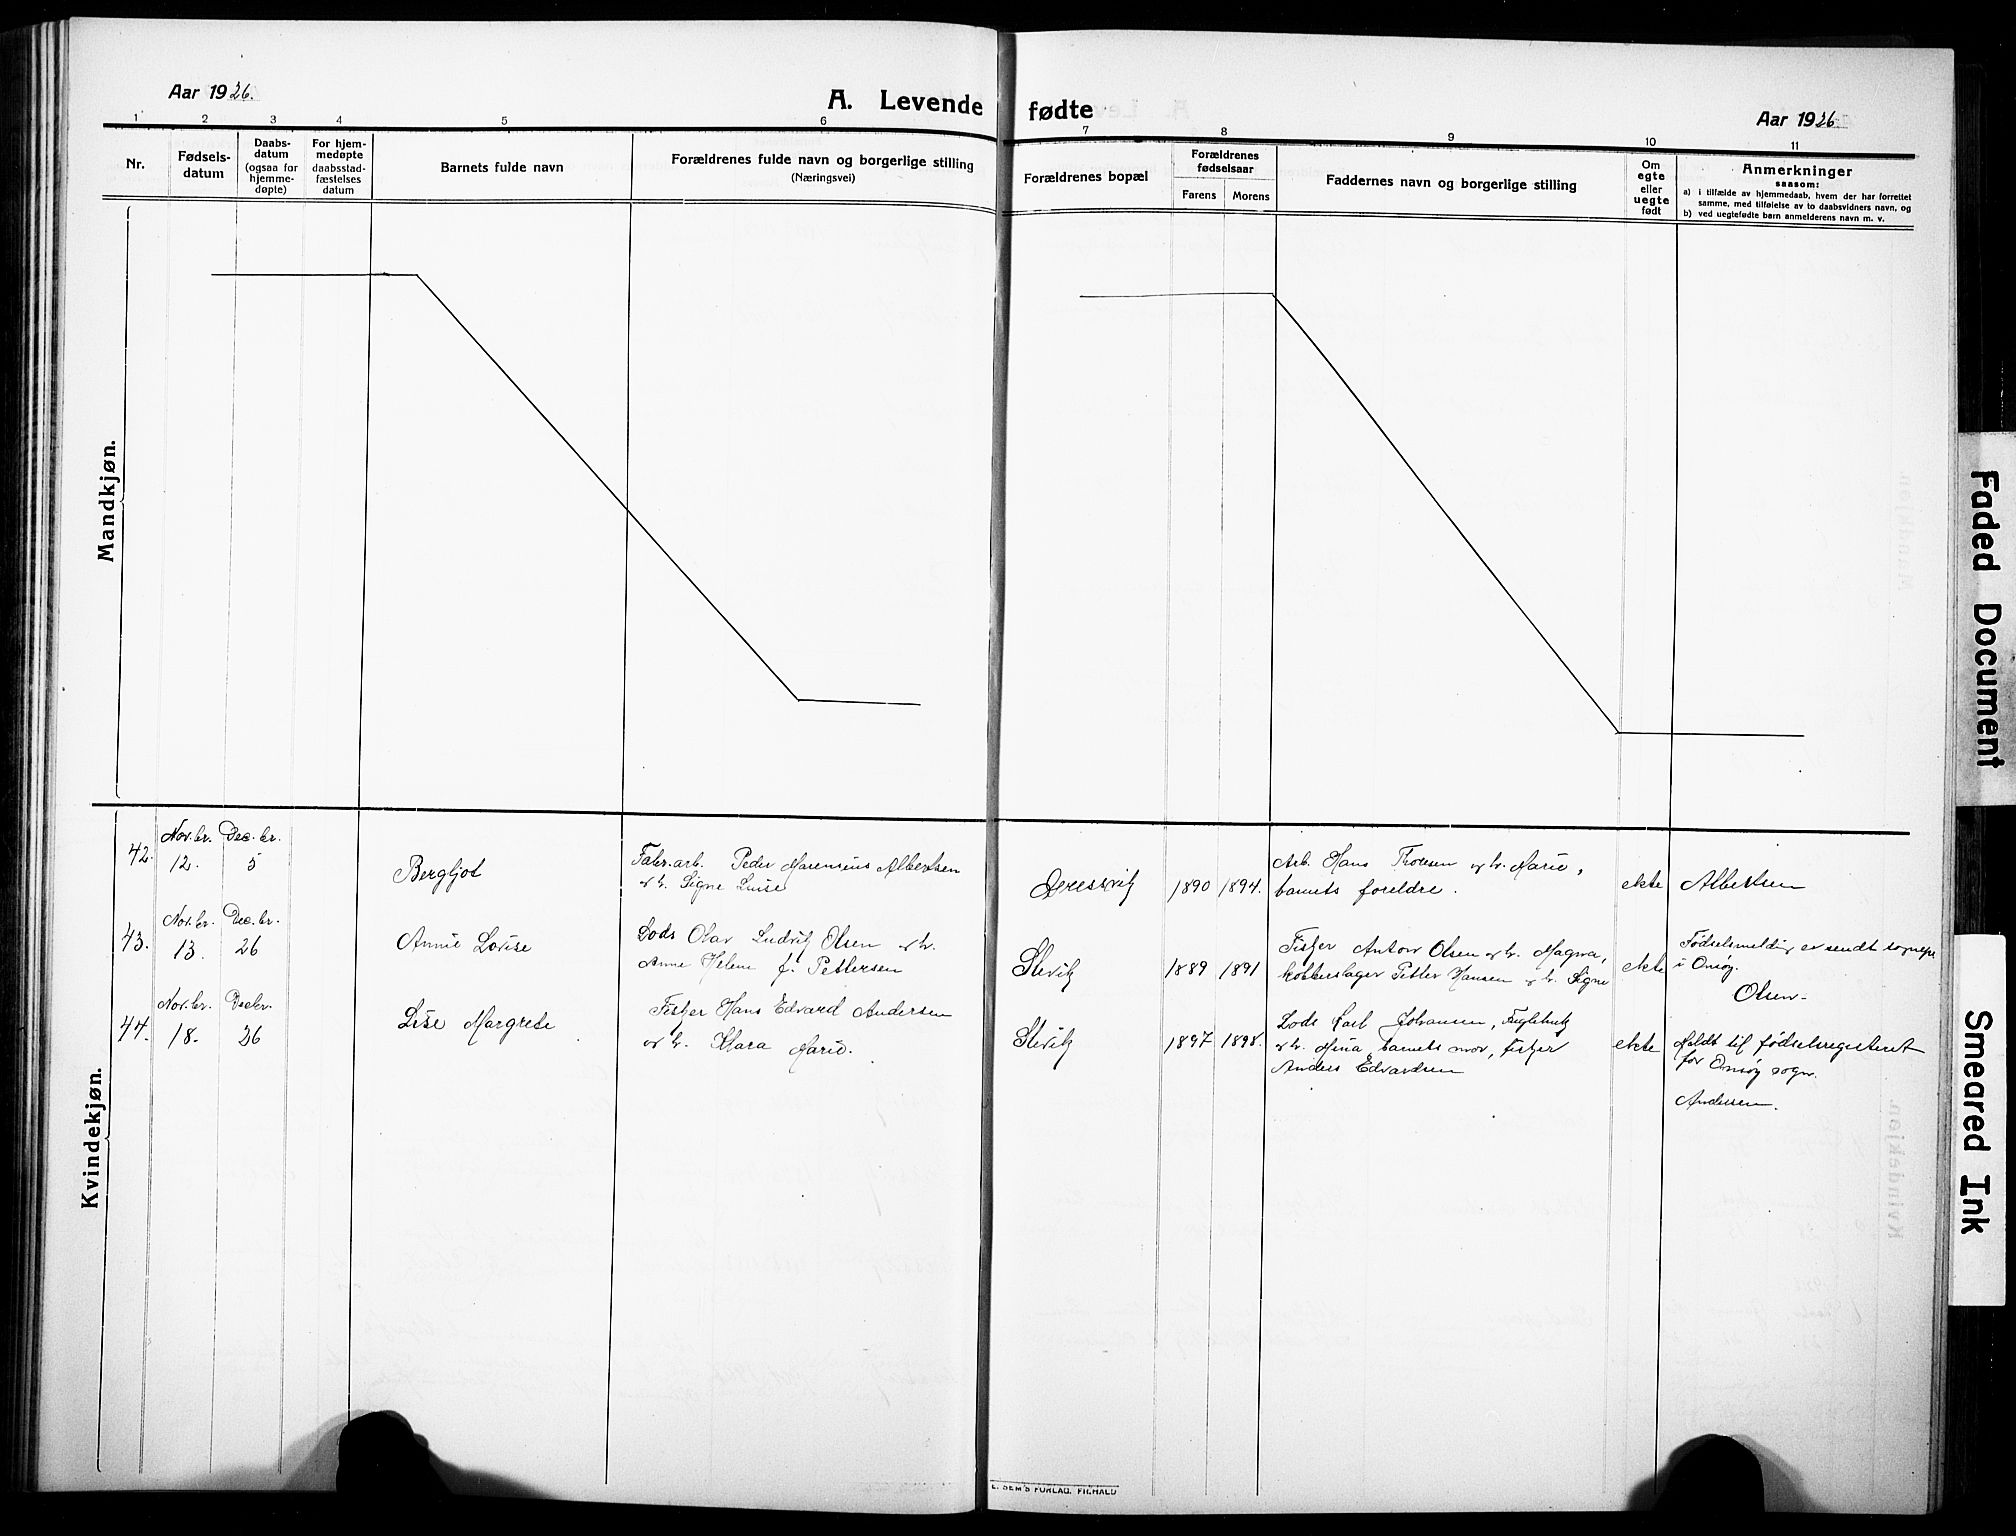 Aar 1926.
A. Levende fødte
Aar 1926
1 2 3 4 5 6 7 8 9 10 11
Nr.
Fødsels-
datum
Daabs-
datum
(ogsaa for
hjemme-
døpte)
For hjem-
medøpte
daabsstad-
fæstelses
datum
Barnets fulde navn
Forældrenes fulde navn og borgerlige stilling
(Næringsvei)
Forældrenes bopæl
Forældrenes
fødselsaar
Farens Morens
Faddernes navn og borgerlige stilling
Om
egte
eller
uegte
født
Anmerkninger
saasom:
a) i tilfælde av hjemmedaab, hvem der har forrettet
samme, med tilføielse av to daabsvidners navn, og
b) ved uegtefødte barn anmelderens navn m. v.
Mandkjøn.
Kvindekjøn.
42.
Nov.br.
12.
Dec.br.
5
Bergljot
Fabr.arb. Peder Marensius Albertsen
og h. Signe Luise
Gressvik
1890 1894.
Arb. Hans Thoresen og h. Marie,
barnets foreldre.
ekte
Albertsen
43.
Nov.br.
13.
Dec.br.
26
Annie Lovise
Lods Olav Ludvik Olsen og h.
Anne Helene f. Pettersen
Slevik
1889 1891
Fisker Anton Olsen og h. Magna,
kobberslager Petter Hansen og h. Signe
ekte
Fødselsmelding er sendt sognepr.
i Onsøy.
Olsen.
44.
Nov.br.
18.
Decbr.
26
Lise Margrete
Fisker Hans Edvard Andersen
og h. Klara Marie.
Slevik
1897 1898.
Lods Carl Johansen, Fuglevik
og h. Mina, barnets mor, fisker
Anders Edvardsen
ekte
Meldt til fødselsregisteret
for Onsøy sogn.
Andersen.
E. SEM'S FORLAG, FR.HALD
Faded Document
Smeared Ink